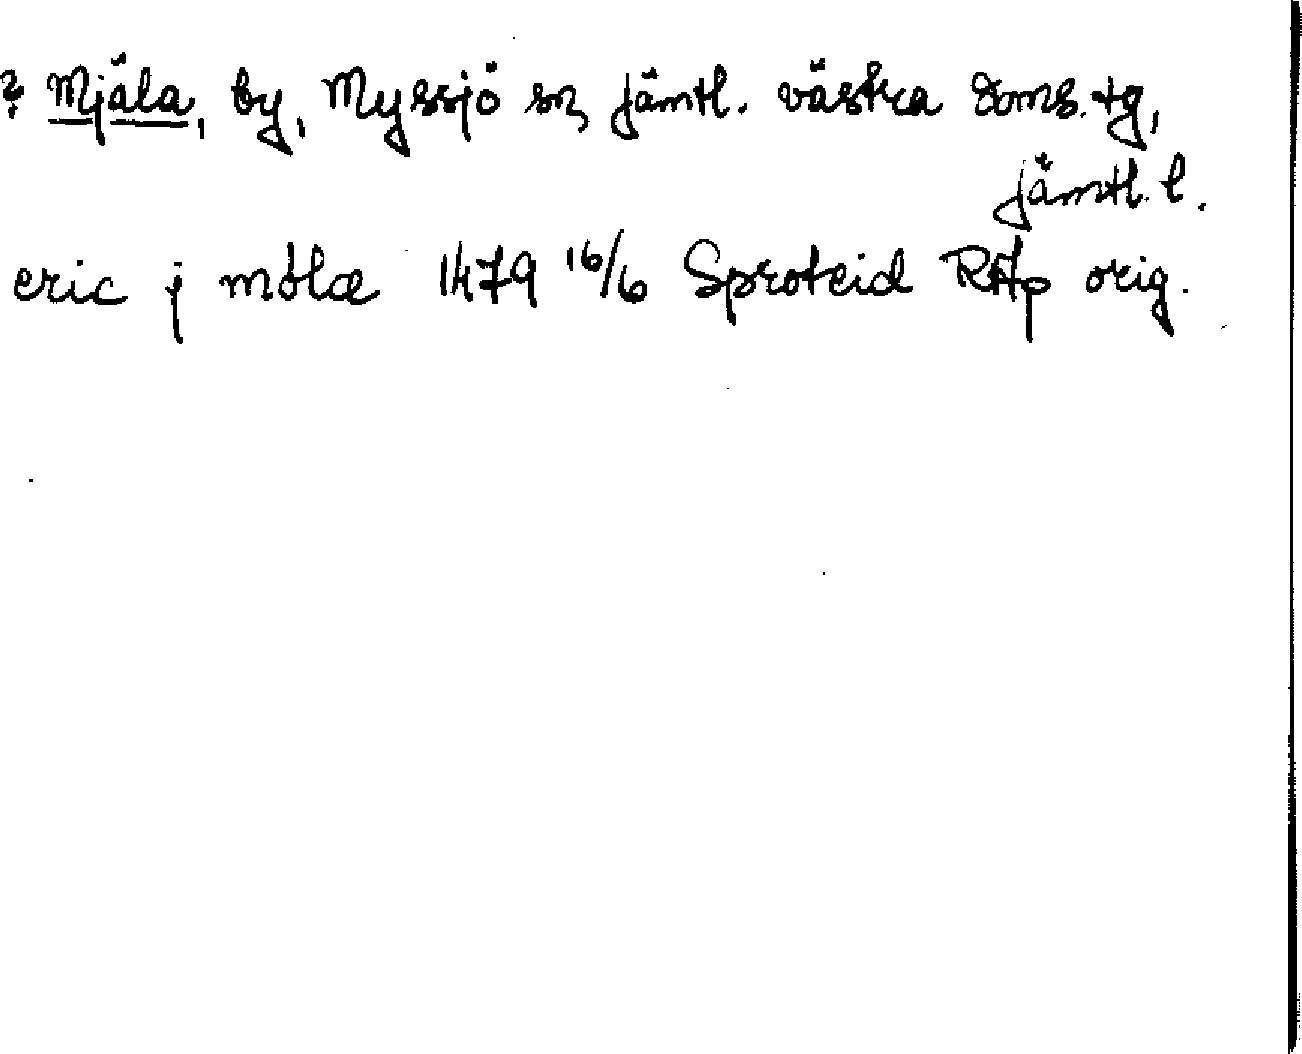 ? Mjäla, by, Myssjö sn, Jämtl. västra doms.tg,
Jämtl. l.
eric j mölæ 1479 16/6 Sproteid RAp orig.